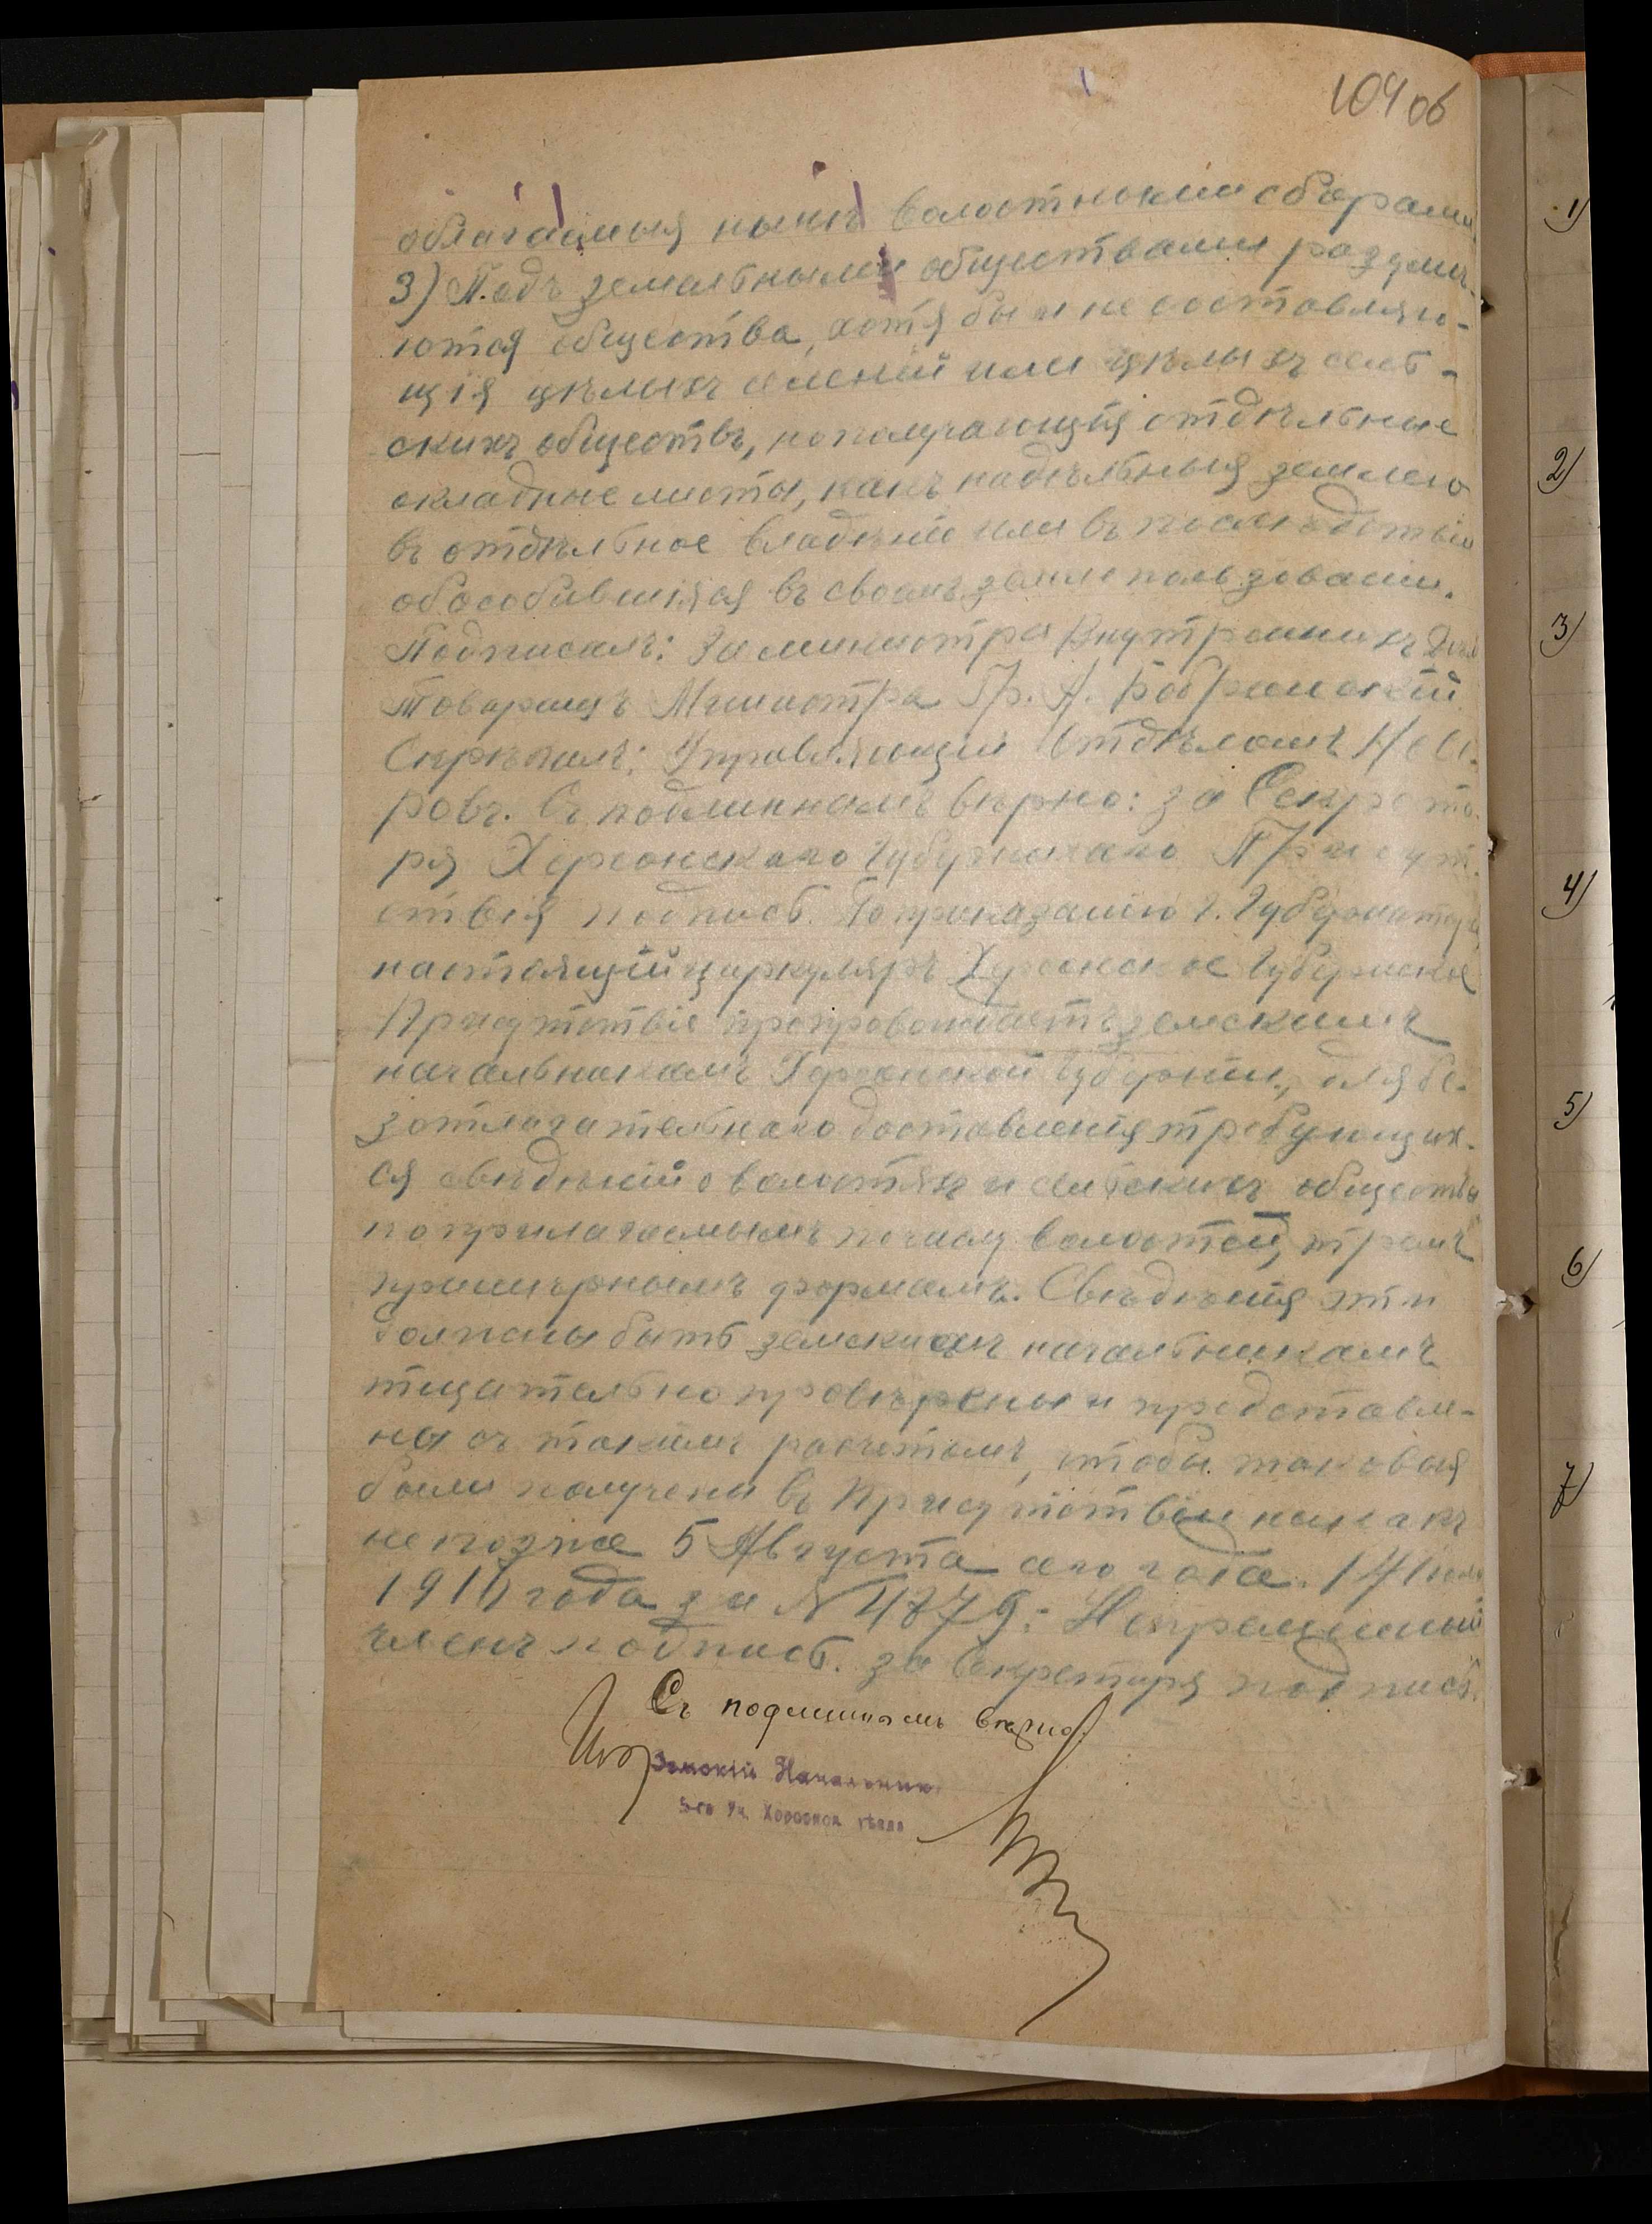 104 об
облагаемыя нынѣ волостными сборами.
3) Подъ земельными обществами разумѣ-
ются общества, хотя бы и не составляю-
щія цѣлыхъ селеній или цѣлыхъ сель-
скихъ обществъ, но получающія отдѣльные
окладные листы, какъ надѣльныя землею
въ отдѣльное владѣніе или въ послѣдствіи
обособившіяся въ своемъ землепользованіи.
Подписалъ: За министра Внутреннихъ Дѣлъ
Товарищъ Министра Гр. А. Бобринскій.
Скрѣпилъ: Управляющій Отдѣломъ
ровъ. Съ подлиннымъ вѣрно: за Секрета-
ря Херсонскаго Губернскаго Присут-
ствія подпись. По приказанію г. Губернатора
настоящій циркуляръ Херсонское Губернское
Присутствіе препровождаетъ земскимъ
начальникамъ Херсонской губерніи, для бе-
зотлагательнаго доставленія требующих-
ся свѣдѣній о волостяхъ и сельскихъ обществъ
по прилагаемымъ по числу волостей, тремъ
примѣрнымъ формамъ. Свѣдѣнія эти
должны быть земскимъ начальникамъ
тщательно провѣрены и представле-
ны съ такимъ расчетомъ, чтобы таковыя
были получены въ Присутствіи никакъ
не позже 5 Августа сего года. 14 Іюля
1911 года за № 4879: Непремѣнный
членъ подпись. за Секретаря подпись.
Съ подлиннымъ вѣрно:
Земскій Начальникъ
5-го Уч. Херсонск. уѣзда
1)
2)
3)
4)
5)
6)
7)